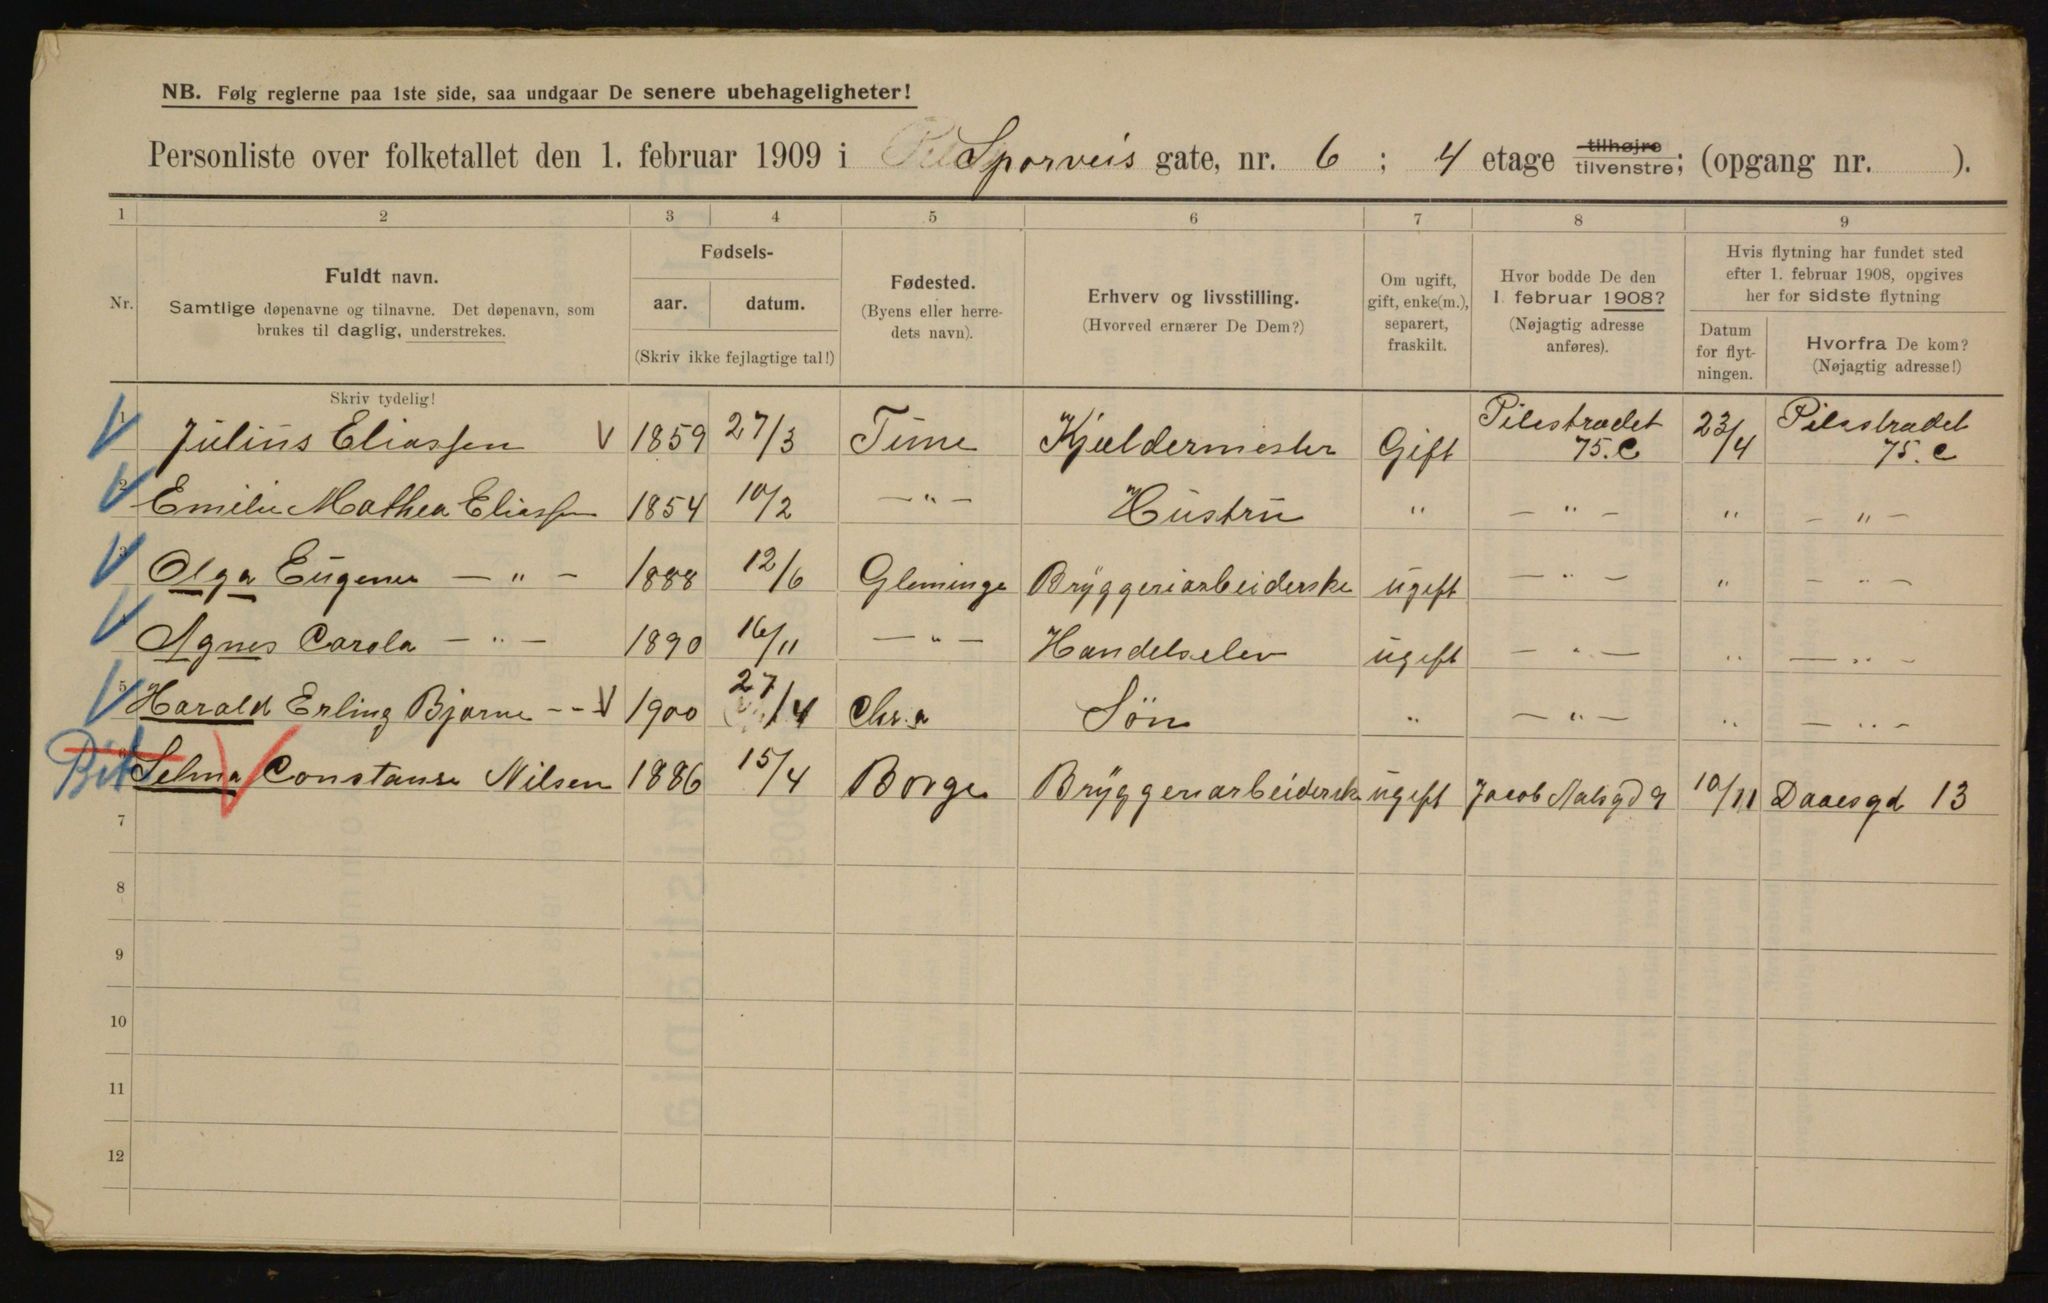 NB. Følg reglerne paa 1ste side, saa undgaar De senere ubehageligheter!
Personliste over folketallet den 1. februar 1909 i Sporveis gate, nr. 6 ; 4 etage tilhøjre tilvenstre; (opgang nr. ).
1 2 3 4 5 6 7 8 9
Nr. Fuldt navn. Samtlige døpenavne og tilnavne. Det døpenavn, som brukes til daglig, understrekes.
Fødsels- aar. datum. (Skriv ikke fejlagtige tal!)
Fødested. (Byens eller herredets navn).
Erhverv og livsstilling. (Hvorved ernærer De Dem?)
Om ugift, gift, enke(m.), separert, fraskilt.
Hvor bodde De den 1 februar 1908? (Nøjagtig adresse anføres).
Hvis flytning har fundet sted efter 1. februar 1908, opgives her for sidste flytning
Datum for flytningen. Hvorfra De kom? (Nøjagtig adresse!)
Skriv tydelig!
1 Julius Eliassen V 1859 27/3 Tune Kjældermester Gift Pilestradet 75.C 23/4 Pilestradet 75.C
2 Emilie Mathea Eliassen 1854 10/2 — " — Hustru " — " — " — " —
3 Olga Eugenie — " — 1888 12/6 Gleminge Bryggeriarbeiderske ugift — " — " — " —
4 Agnes Carola — " — 1890 16/11 — " — Handelselev ugift — " — " — " —
5 Harald Erling Bjarne - - V 1900 27/4 Chr.a Søn " — " — " — " —
6 Selma Constanse Nilsen 1886 15/4 Borge Bryggeriarbeiderske ugift Jacob Aalsgd 9 10/11 Daaesgd 13
7
8
9
10
11
12